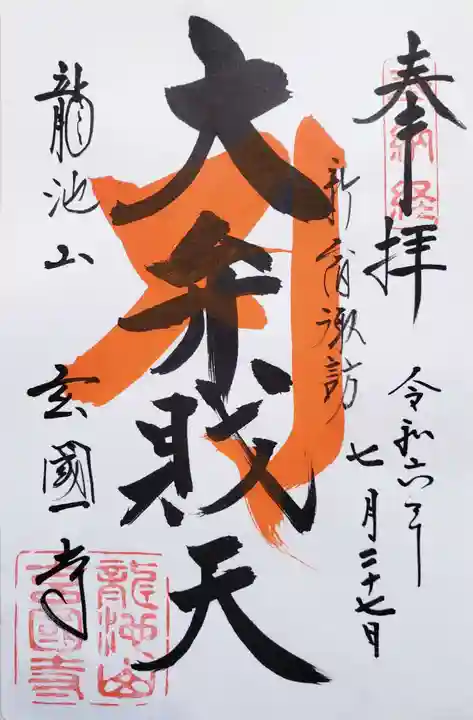 奉拝
奉納経
令和六年
七月二十七日
新宿諏訪
大弁財天
龍池山
玄國寺
龍池山
玄國寺